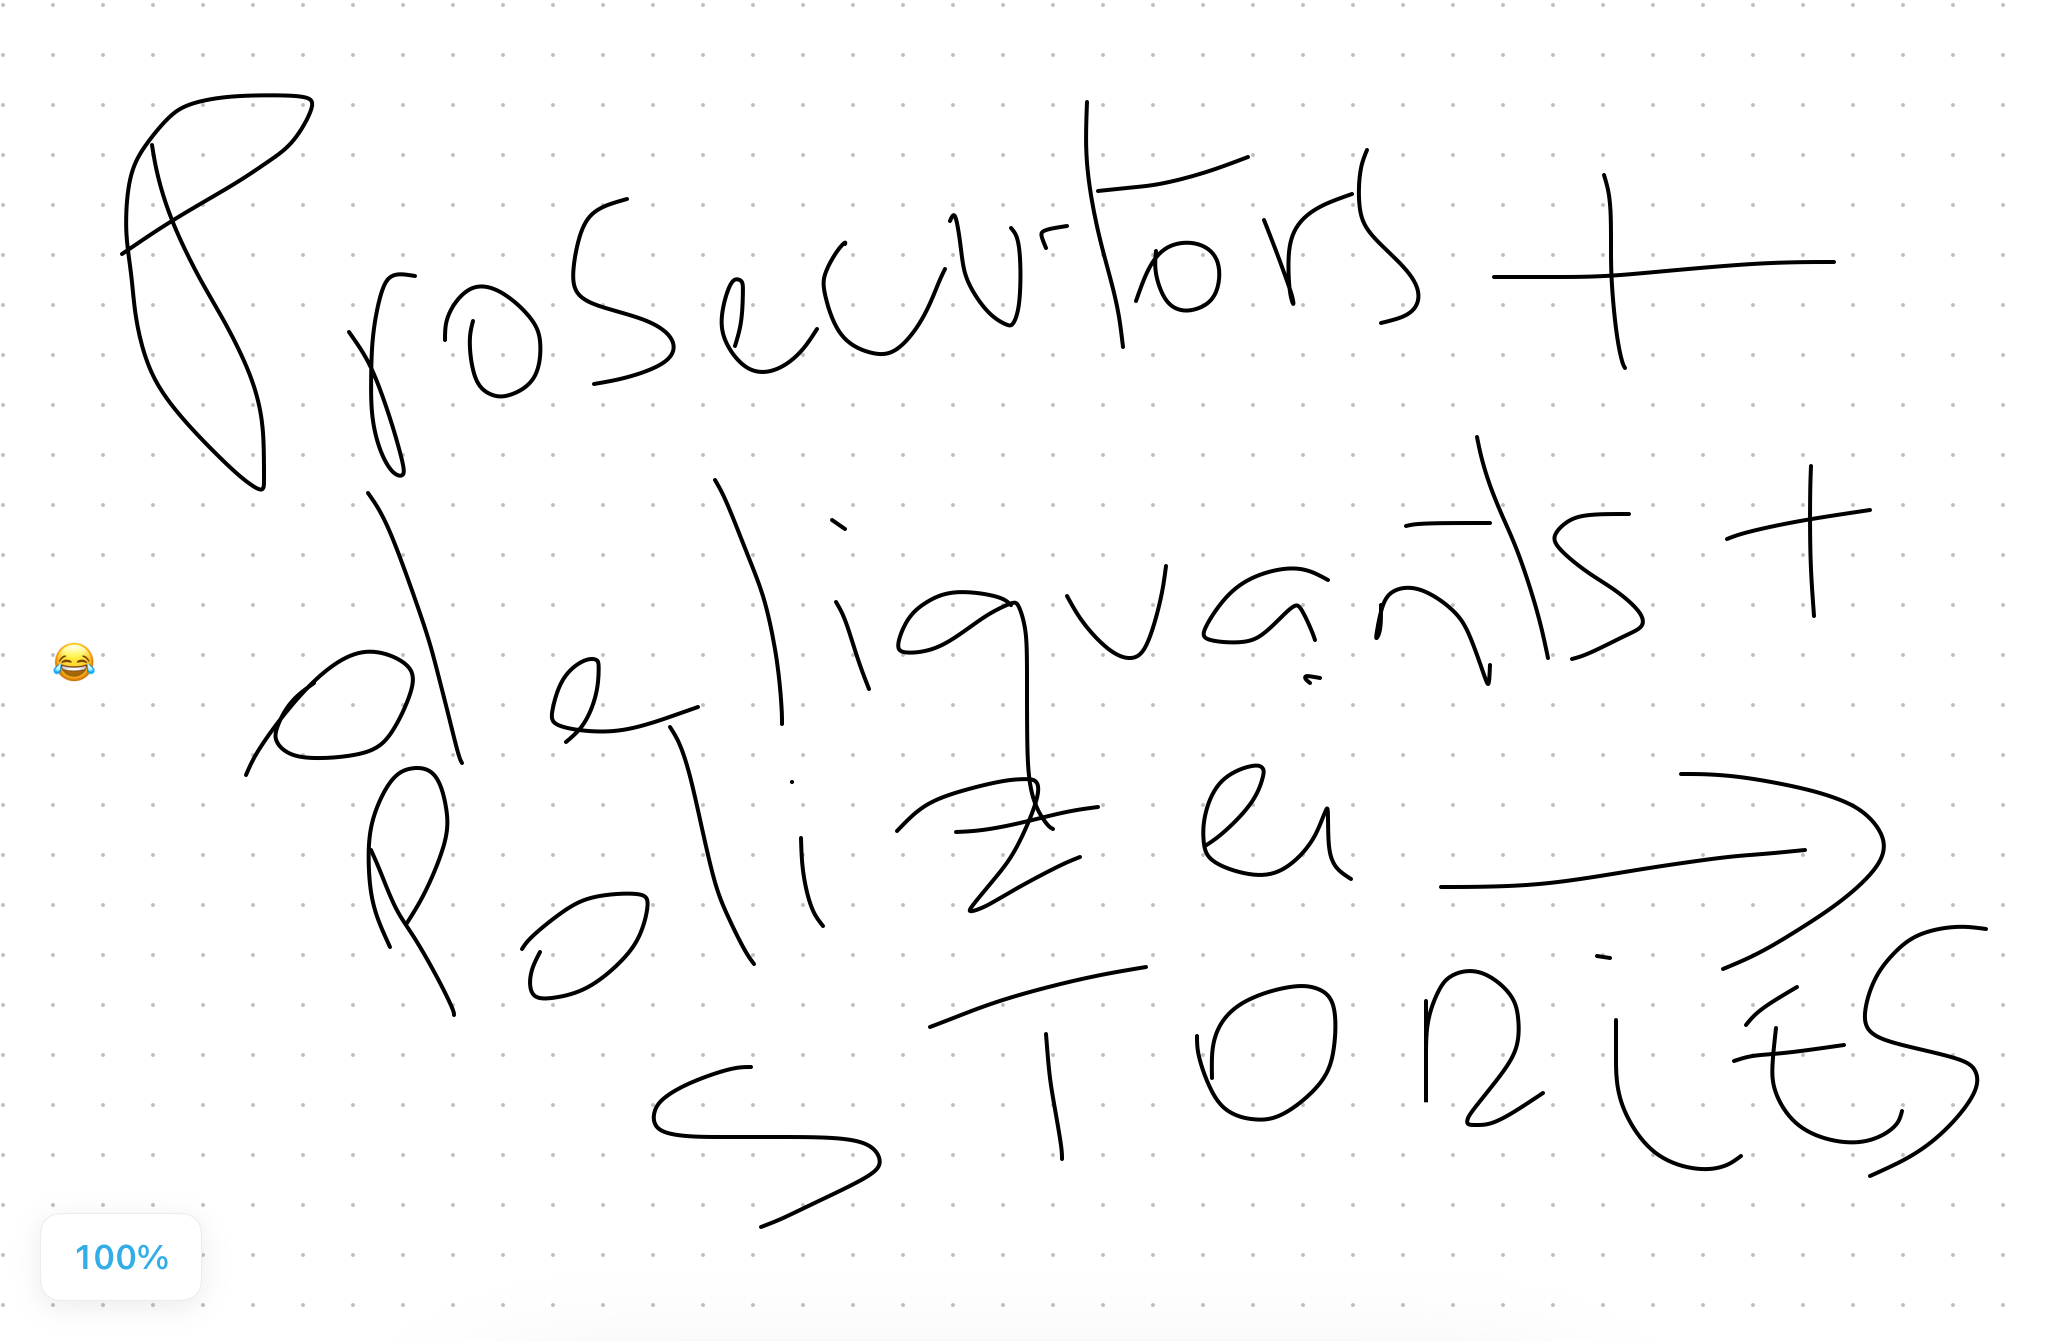 Prosecutors +
deliquants +
Polizei →
STORiES
100%